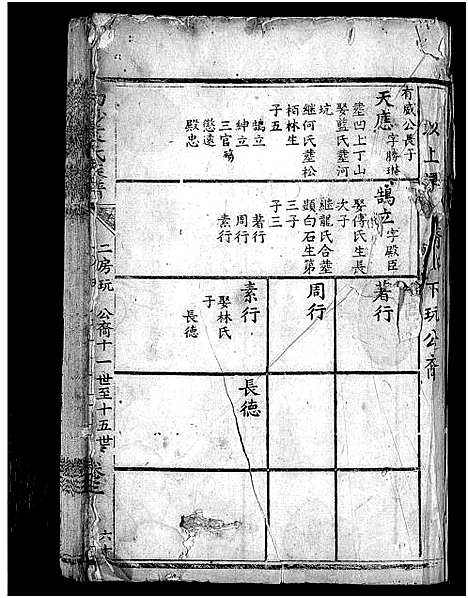 有威公長子
天應字勝琳
塟凹上丁山
娶藍氏塟河
坑
継何氏塟松
栢林生
子五
鵠立
紳立
三官殤
懲遠
殿忠
鵠立字殿臣
娶傅氏生長
次子
継龍氏合塟
顯白石生第
三子
子三
著行
周行
素行
著行
周行
素行
娶林氏
子
長德
長德
以上
下玩公裔
二房玩公裔十一世至十五世